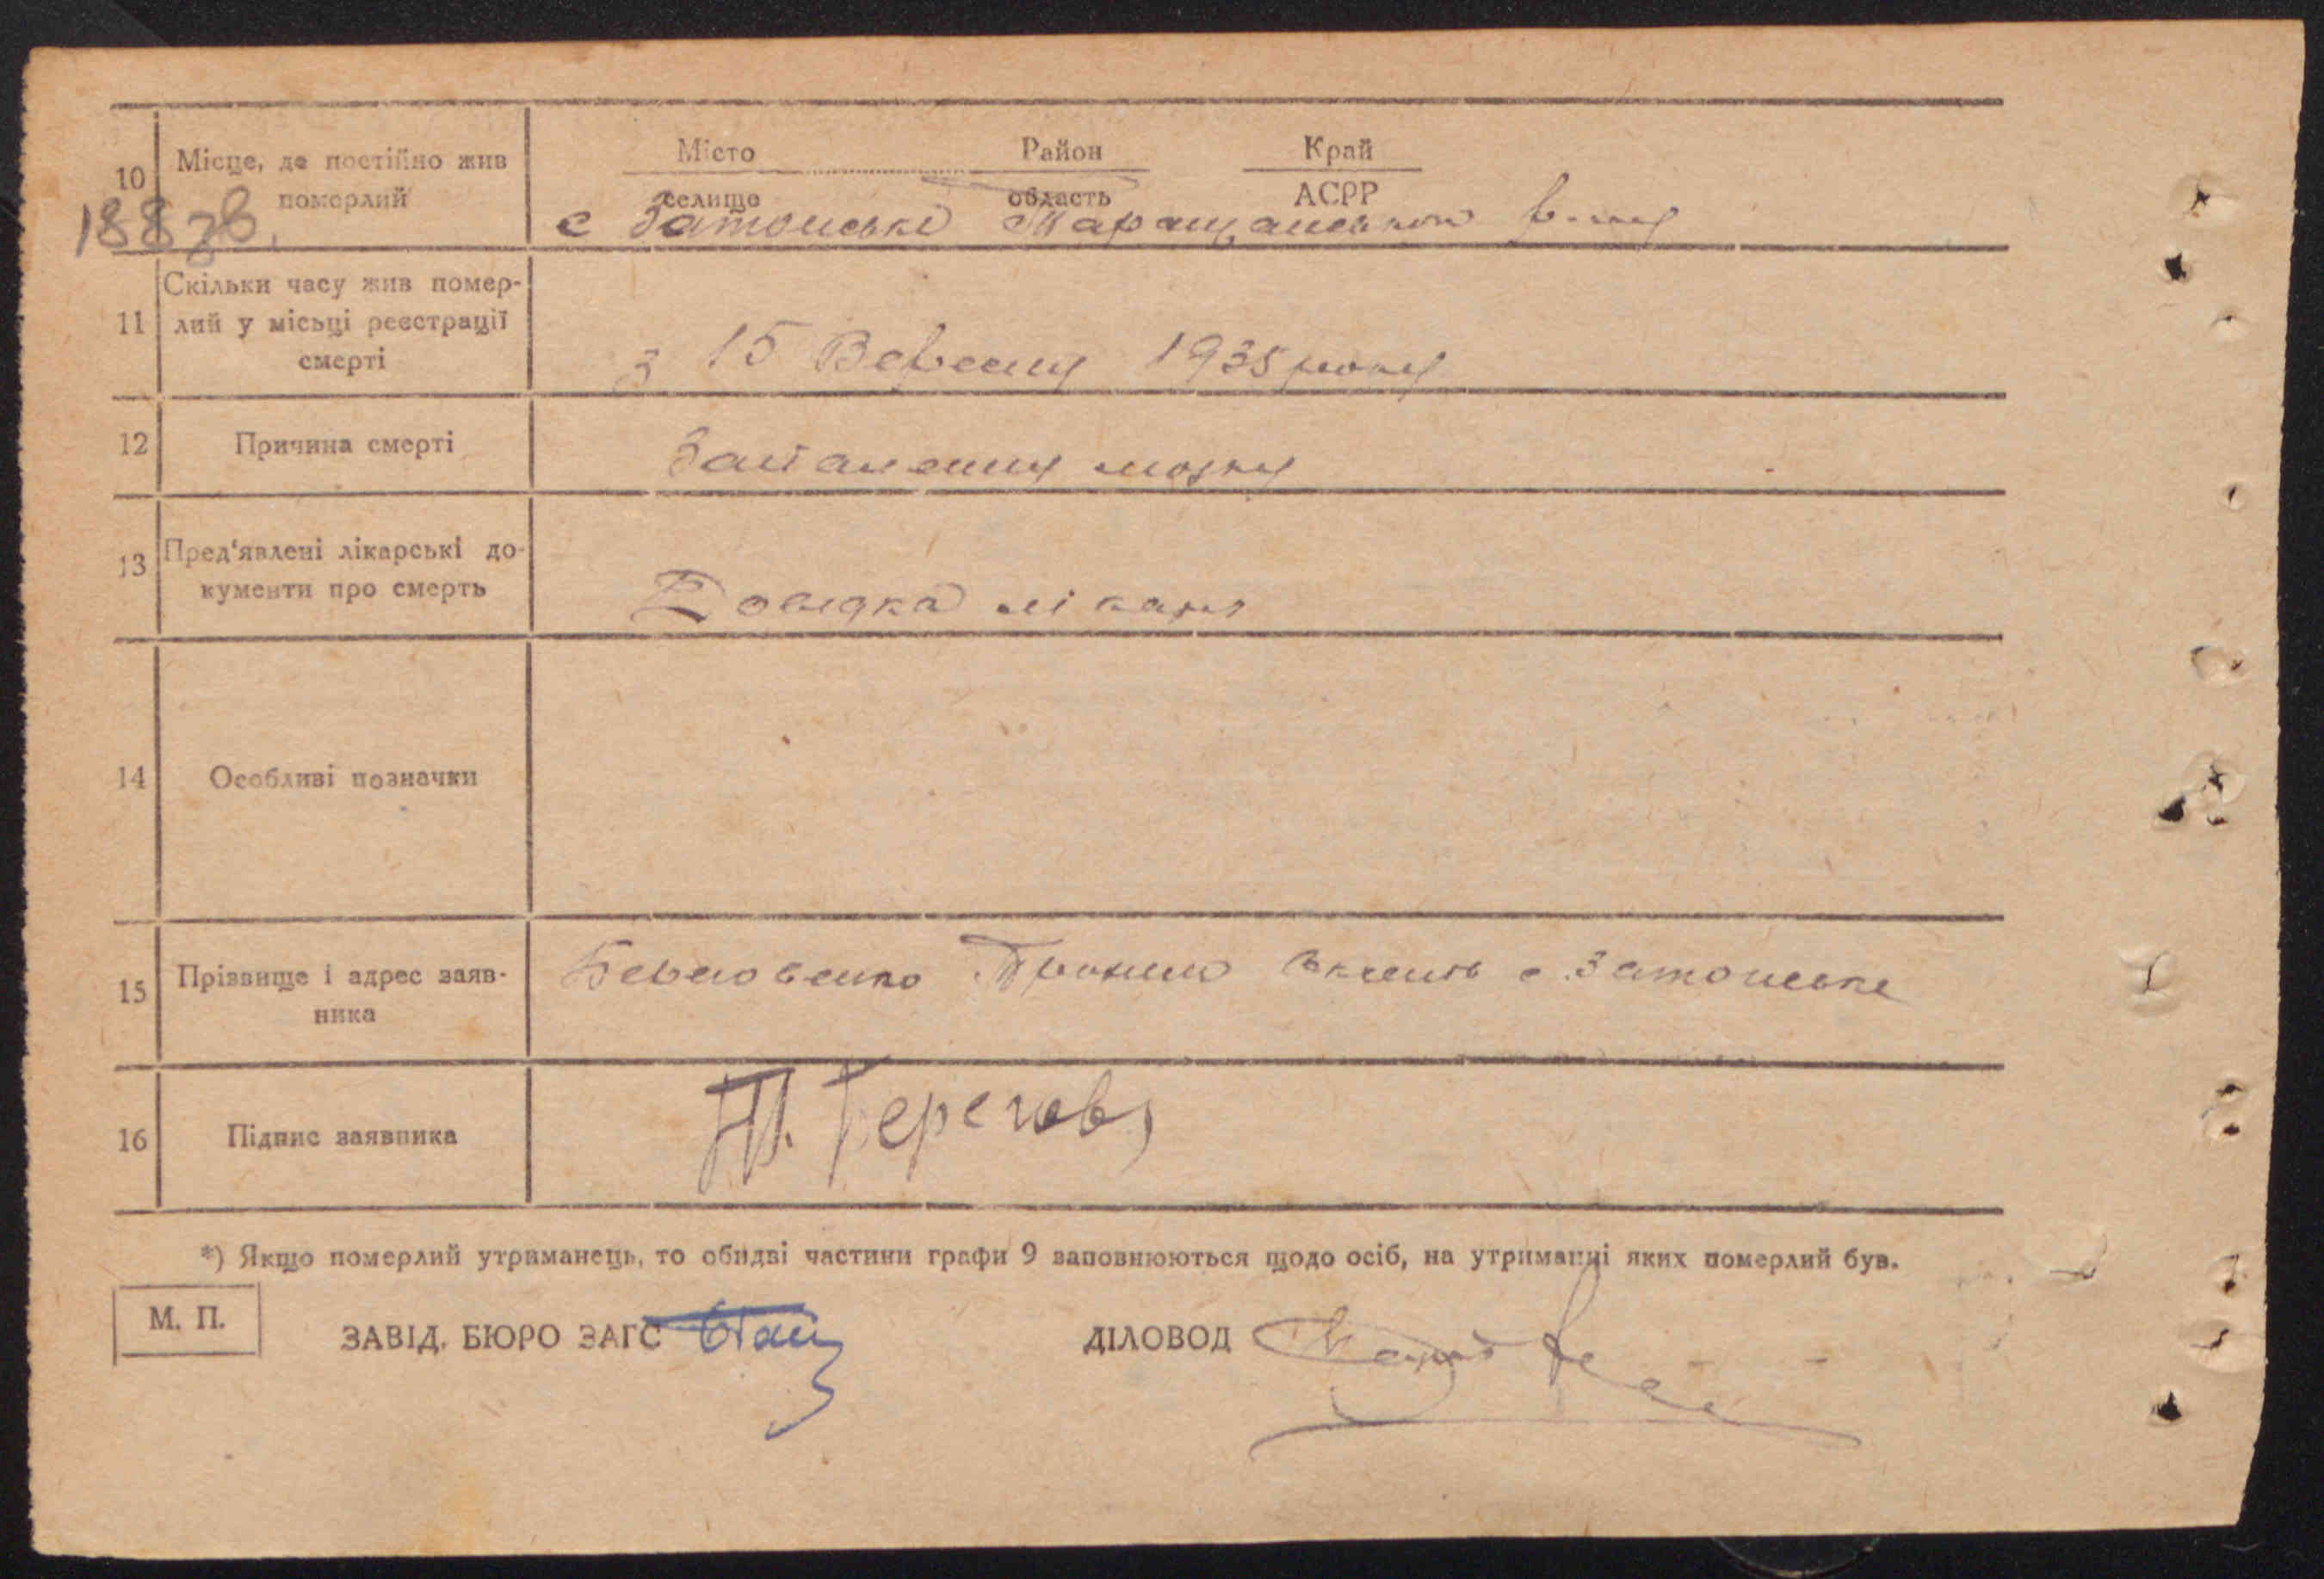 10 Місце, де постійно жив
померлий
Місто Район Край
селище область АСРР
188
с Затонські Таращанського
11 Скільки часу жив помер-
лий у місьці реєстрації
смерті
з 15 Вересня 1935 року
12 Причина смерті
Запалення мозку
13 Пред'явлені лікарські до-
кументи про смерть
Довідка лікаря
14 Особливі позначки
15 Прізвище і адрес заяв-
ника
с Затонське
16 Підпис заявника
Т. Берегов
*) Якщо померлий утриманець, то обидві частини графи 9 заповнюються щодо осіб, на утриманні яких померлий був.
М. П.
ЗАВІД. БЮРО ЗАГС ДІЛОВОД